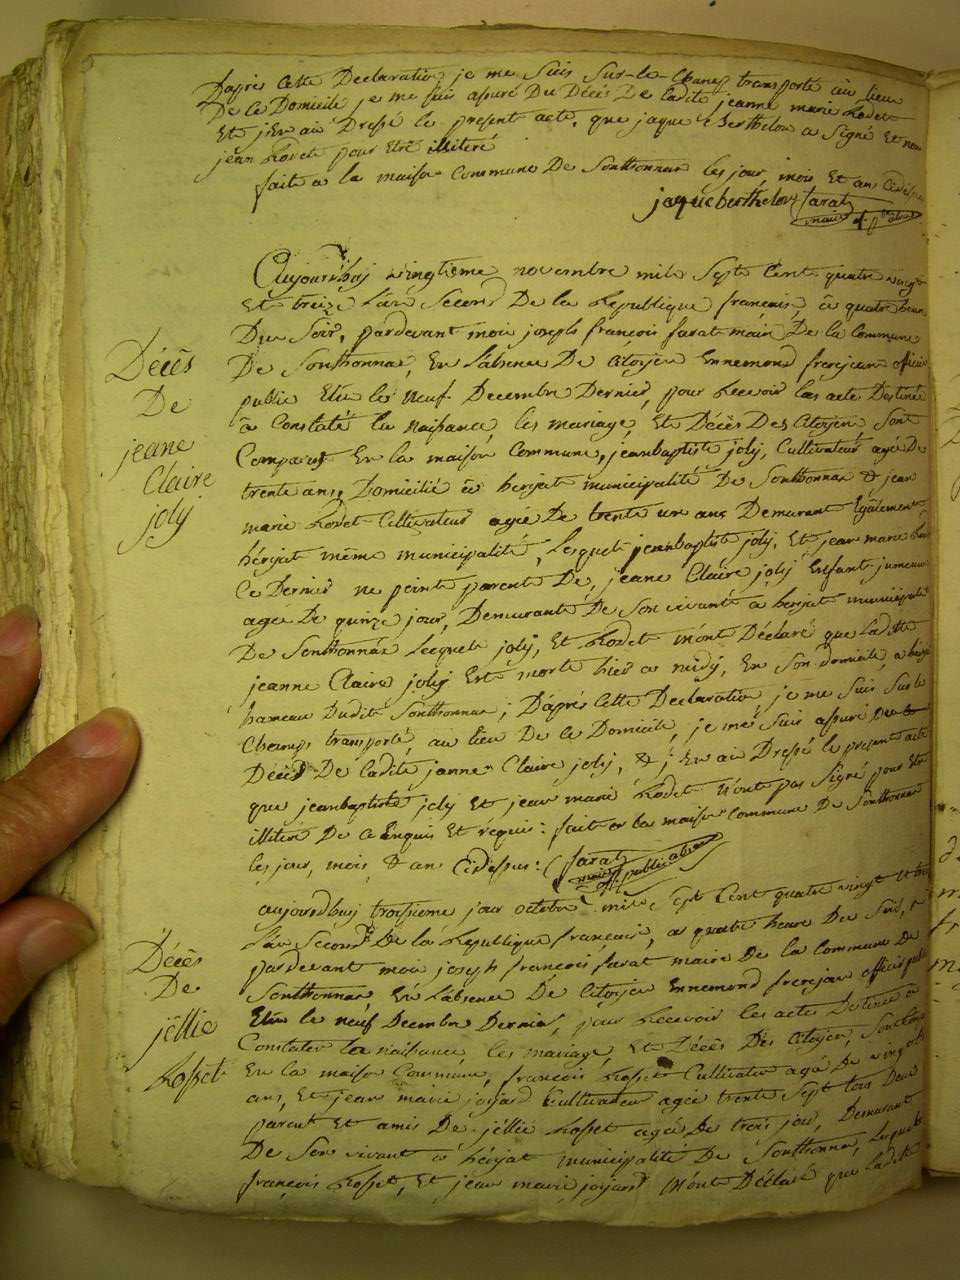 D'après Cette Declaration je me Suis Sur-le-Champ transporté au lieu
De Ce Domicile je me suis assuré Du Décès De ladite jeanne marie Rodet
Et j'En ai Dressé le present acte, que jaque Berthelon a Signé Et non
jean Rodet pour Etre illiteré
fait a la maison Commune De Sonthonnax les jour, mois Et an Cidessus
jaque berthelon farat
maire off. p.
Décès
De
jeane
Claire
joly
Aujourdhuj vingtieme novembre mile Sept Cent quatre vingt
Et treize L'an Second De la Republique francaise, à quatre heure
Du Soir, pardevant moi joseph françois farat maire De la Commune
De Sonthonnax, En L'absence De Citoyen Ennemond frerejean officier
public Elu le Neuf Decembre Dernier, pour Recevoir les acte Destinés
à Constaté la Naissance, les mariage, Et Décès Des Citoyen Sont
Comparus En la maison Commune, jeanbaptiste joly, Cultivateur agé De
trente ans, Domicilié à heriat municipalité De Sonthonnax & jean
marie Rodet Cultivateur agée De trente un ans Demurant Egalement
hériat même municipalité, Lesquels jeanbaptiste joly, Et jean marie Rodet
Ce Dernier ne point parente De, jeane Claire joly Enfant jumeau
agée De quinze jour, Demurante De Son vivant a heriat municipalité
De Sonthonnax Lesquels joly, Et Rodet m'ont Déclaré que ladite
jeanne Claire joly Est morte hier a midy, En Son domicile, a heriat
hameau Dudit Sonthonnax; D'après Cette Declaration je me Suis Sur le
Champ transporté, au lieu De Ce Domicile, je me Suis assuré Du
Décès De ladite janne Claire joly, & j'En ai Dressé le present acte
que jeanbaptiste joly Et jean marie Rodet N'ont pas Signé pour Etre
illiteré De Ce Enquis Et requis: fait En la maison Commune De Sonthonnax
les jour, mois & ans Cidessus: farat
maire off. public absent
Décès
De
jéllie
Rosset
aujourdhuj troisieme jour octobre mile Sept Cent quatre vingt Et treize
L'an Second De la Republique française, a quatre heure De Soir,
pardevant moi joseph françois farat maire De la Commune De
Sonthonnax, En L'absence De Citoyen Ennemond frerejean officier public
Elu le neuf Decembre Dernier, pour Recevoir les actes Destiné a
Constater la naissance, les mariage, Et Décès Des Citoyen, Sont Comparus
En la maison Commune, françois Rosset Cultivateur agé De vingt
ans, Et jean marie joyard Cultivateur agée trente Sept tous Deux
parent Et amis De jéllie Rosset agée De trois jour, Demurant
De Son vivant a hériat municipalité De Sonthonnax, Lesquels
françois Rosset, Et jean marie joyard M'ont Déclaré que ladite